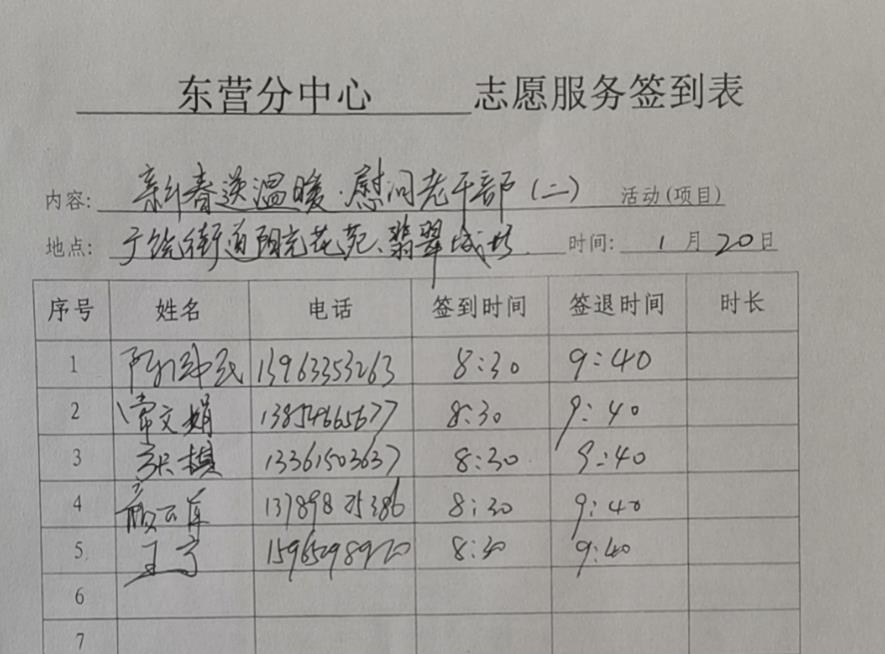 东营分中心 志愿服务签到表
内容: 新春送温暖·慰问老干部(二) 活动(项目)
地点: 街道阳光花苑、翡翠城 时间: 1月20日
序号 姓名 电话 签到时间 签退时间 时长
1 13963353263 8:30 9:40
2 常文娟 13854665677 8:30 9:40
3 张棋 13361503637 8:30 9:40
4 8:30 9:40
5 8:30 9:40
6
7